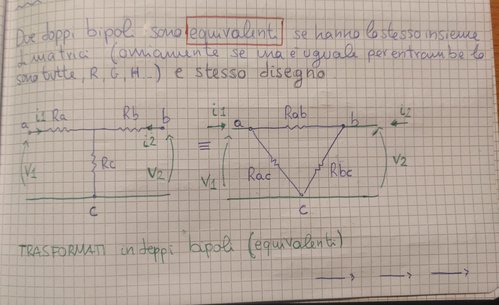 Due doppi bipoli sono equivalenti se hanno lo stesso insieme
di matrici (ovviamente se una è uguale per entrambe lo
sono tutte, R, G, H...) e stesso disegno
a i1 Ra Rb b
i2
V1 Rc V2
c
≡
i1 a Rab b i2
V1 Rac Rbc V2
c
TRASFORMATI in doppi bipoli (equivalenti)